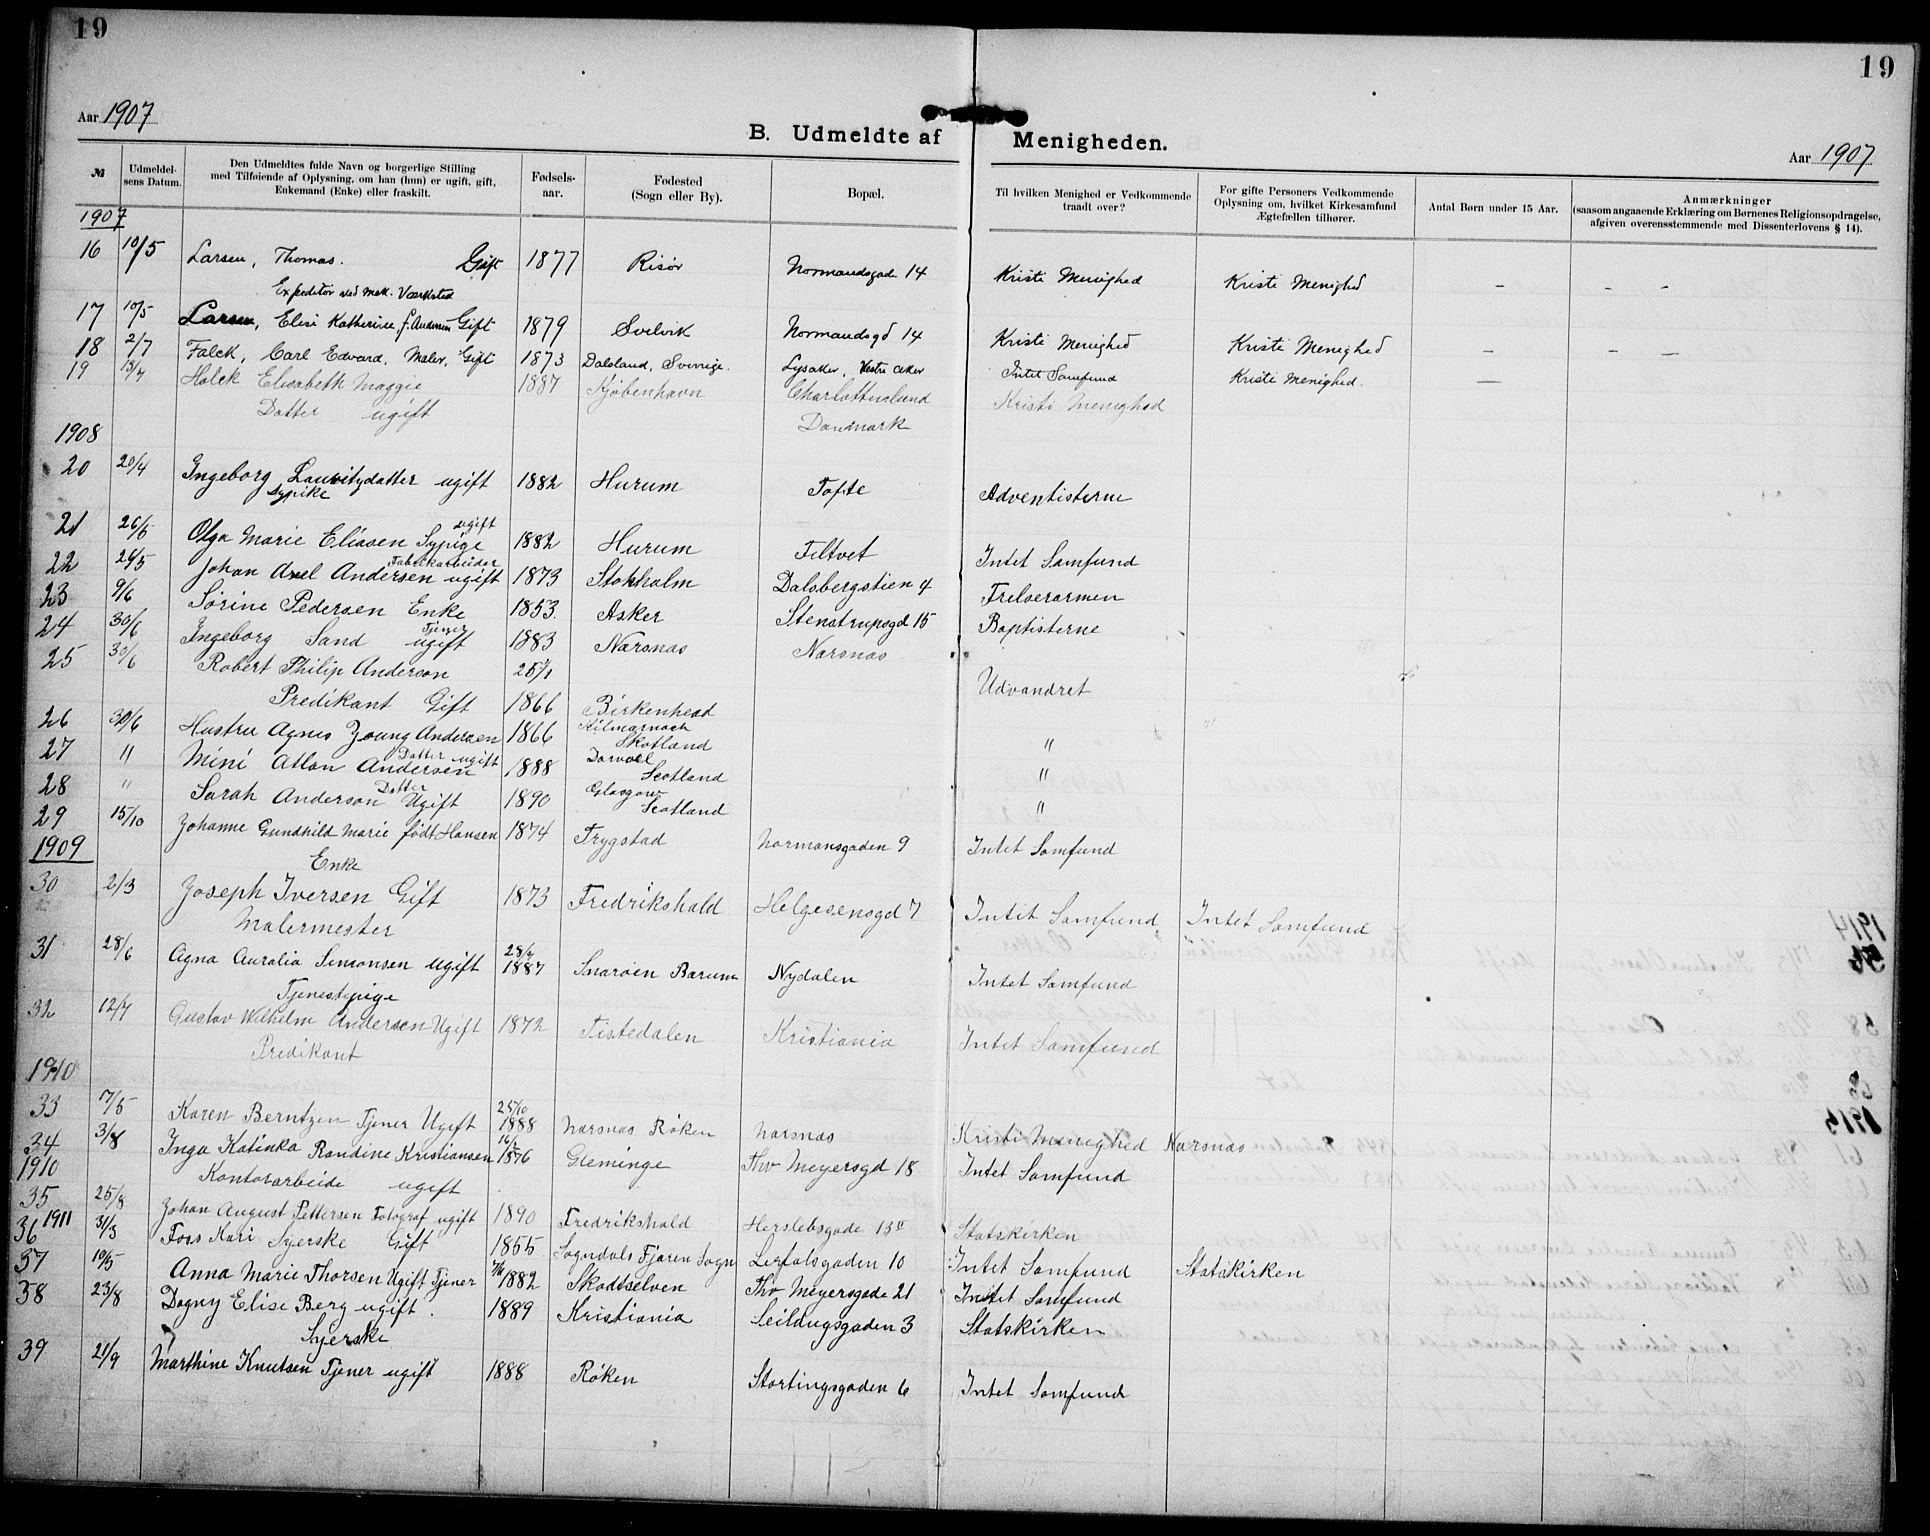 19
19
Aar 1907
B. Udmeldte af Menigheden.
Aar 1907
№ | Udmeldelsens Datum. | Den Udmeldtes fulde Navn og borgerlige Stilling med Tilføiende af Oplysning, om han (hun) er ugift, gift, Enkemand (Enke) eller fraskilt. | Fødselsaar. | Fødested (Sogn eller By). | Bopæl. | Til hvilken Menighed er Vedkommende traadt over? | For gifte Personers Vedkommende Oplysning om, hvilket Kirkesamfund Ægtefællen tilhører. | Antal Børn under 15 Aar. | Anmærkninger (saasom angaaende Erklæring om Børnenes Religionsopdragelse, afgiven overensstemmende med Dissenterlovens § 14).
1907
16 10/5 Larsen, Thomas. Gift 1877 Risør Normandsgade 14 Kristi Menighed Kristi Menighed – – –
Expeditør ved Mek. Værksted
17 10/5 Larsen, Elisi Katherine f. Andersen Gift 1879 Svelvik Normandsgd 14 Kristi Menighed Kristi Menighed – – –
18 2/7 Falck, Carl Edvard, Maler, Gift 1873 Dalsland, Sverrige. Lysaker, Vestre Aker Intet Samfund Kristi Menighed. —
19 13/7 Holck Elisabeth Maggie 1887 Kjøbenhavn Charlottenlund Kristi Menighed
Datter ugift Danmark
1908
20 20/4 Ingeborg Lauritzdatter ugift 1882 Hurum Tofte Adventisterne
Sypike
21 26/5 Olga Marie Eliasen Sypige ugift 1882 Hurum Filtvet Intet Samfund
22 29/5 Johan Axel Andersen Fabrikarbeider ugift 1873 Stokholm Dalsbergstien 4 Frelserarmen
23 9/6 Sørine Pedersen Enke 1853. Asker Stenstrupsgd 15 Baptisterne
24 30/6 Ingeborg Sand Tjener ugift 1883 Nærsnæs Nærsnæs
25 30/6 Robert Philip Anderson 25/1
Predikant Gift 1866 Birkenhead Udvandret
26 30/6 Hustru Agnes Young Andersen 1866 Kilmarnock Skotland "
27 " Mini Atlan Andersen Datter ugift 1888 Darvoel Scotland "
28 " Sarah Anderson Datter Ugift 1890 Glasgow Scotland "
29 15/10 Johanne Gundhild Marie født Hansen 1874 Trygstad Normansgaden 9 Intet Samfund
1909
Enke
30 2/3 Joseph Iversen Gift 1873 Fredrikshald Helgesensgd 7 Intet Samfund Intet Samfund
Malermester
31 28/6 Agna Auralia Simonsen ugift 28/9 1887 Snarøen Bærum Nydalen Intet Samfund
Tjenestepige
32 12/7 Gustav Wilhelm Andersen Ugift 1872 Tistedalen Kristiania Intet Samfund
Predikant
1910
33 17/5 Karen Berntzen Tjener Ugift 25/10 1888 Nærsnæs Røken Nærsnæs Kristi Menighed Nærsnæs
34 3/8 Inga Katinka Randine Kristiansen 16/2 1876 Gleminge Thv Meyersgd 18 Intet Samfund
1910 Kontorarbeide ugift
35 25/8 Johan August Pettersen Fotograf ugift 1890 Fredrikshald Herslebsgade 13 Statskirken
1911
36 31/3 Foss Kari Syerske Gift 1855 Sogndals Fjæren Sogn Lerfalsgaden 10 Intet Samfund Statskirken
37 10/5 Anna Marie Thorsen Ugift Tjener 1882 Skotselven Thv Meyersgade 21 Intet Samfund
38 23/8 Dagny Elise Berg ugift. 1889 Kristiania Seildugsgaden 3 Statskirken
Syerske
39 21/9 Marthine Knutsen Tjener ugift 1888 Røken Stortingsgaden 6 Intet Samfund